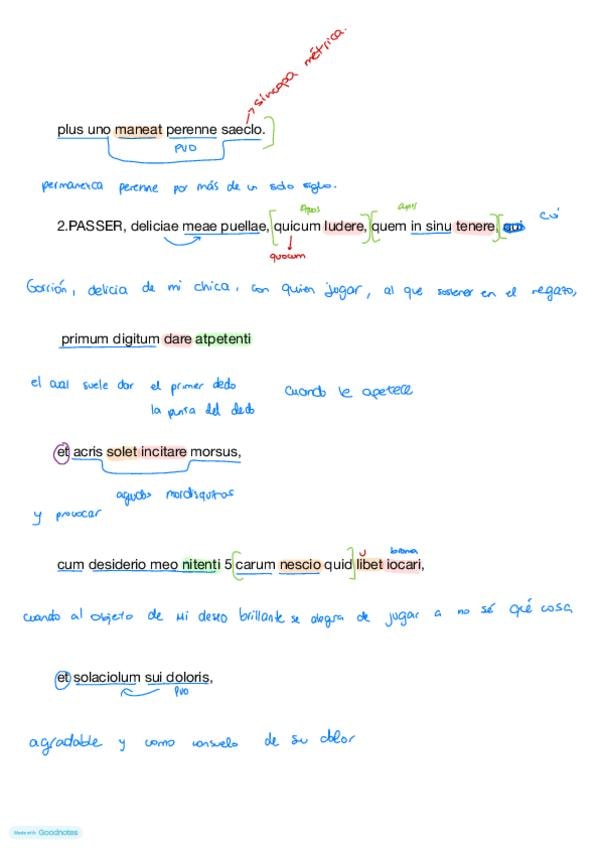 síncopa métrica.
plus uno maneat perenne saeclo.
PVO
permanezca perenne por más de un solo siglo.
Apos apos
2.PASSER, deliciae meae puellae, quicum ludere, quem in sinu tenere, qui cui
quocum
Gorrión, delicia de mi chica, con quien jugar, al que sostener en el regazo,
primum digitum dare atpetenti
el cual suele dar el primer dedo cuando le apetece
la punta del dedo
et acris solet incitare morsus,
agudos mordisquitos
y provocar
u broma
cum desiderio meo nitenti 5 carum nescio quid libet iocari,
cuando al objeto de mi deseo brillante se alegra de jugar a no sé qué cosa
et solaciolum sui doloris,
PVO
agradable y como consuelo de su dolor
Made with Goodnotes